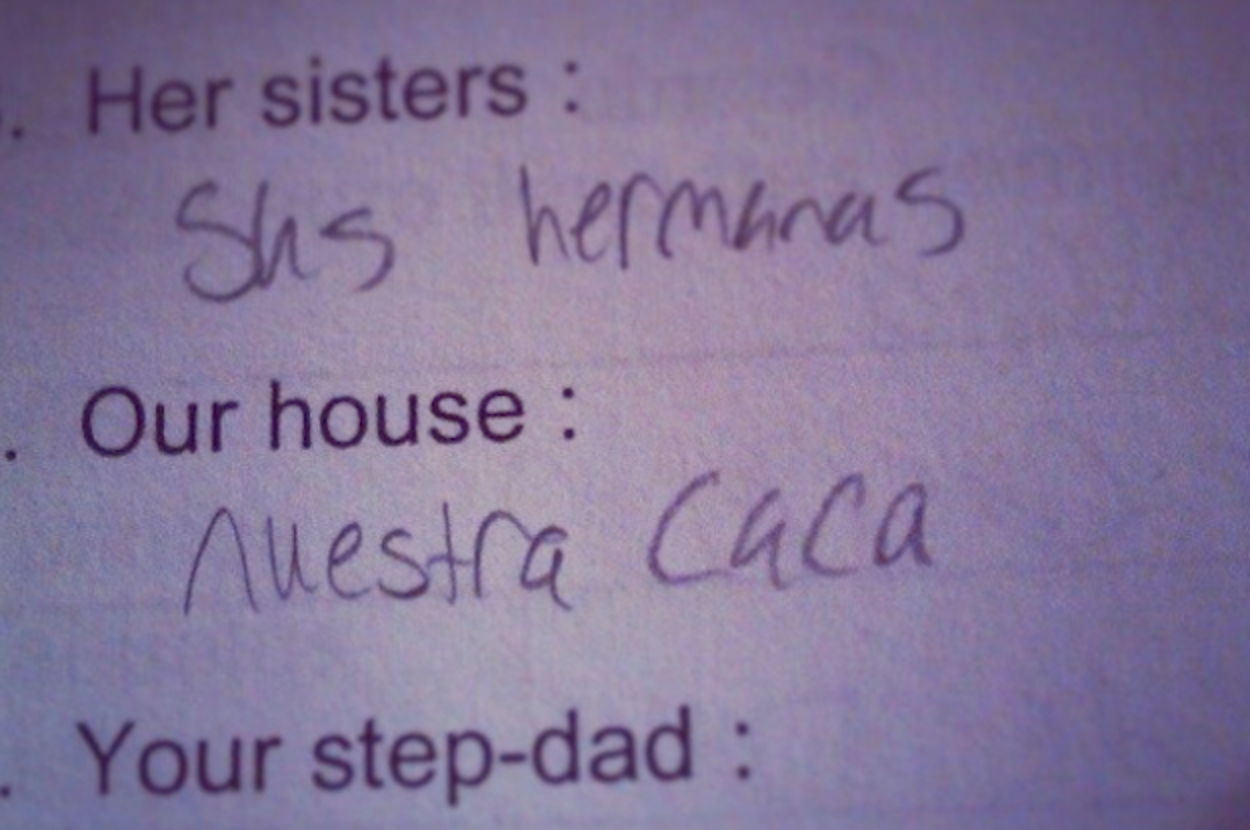 . Her sisters :
Sus hermanas
. Our house :
nuestra caca
. Your step-dad :